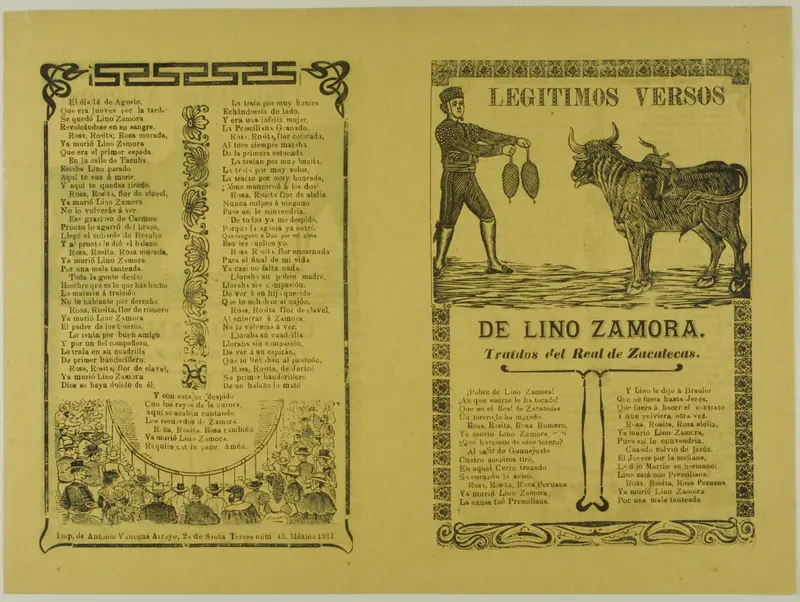 El día 14 de Agosto,
Que era jueves por la tarde
Se quedó Lino Zamora
Revolcándose en su sangre.
Rosa, Rosita; Rosa morada,
Ya murió Lino Zamora
Que era el primer espada.
En la calle de Tacuba
Estaba Lino parado
Aquí te vas á morir,
Y aquí te quedas tirado.
Rosa, Rosita, flor de clavel,
Ya murió Lino Zamora
No lo volverás á ver.
Ese gracioso de Carmen
Pronto lo agarró del brazo,
Llegó el cobarde de Braulio
Y al pronto le dió el balazo.
Rosa, Rosita, Rosa morada,
Ya murió Lino Zamora
Por una mala tanteada.
Toda la gente decía:
Hombre que es lo que has hecho
Lo mataste á traición
No le hablaste por derecho.
Rosa, Rosita, flor de romero
Ya murió Lino Zamora
El padre de los toreros.
Lo tenía por buen amigo
Y por un fiel compañero,
Lo traía en su cuadrilla
De primer banderillero.
Rosa, Rosita, flor de clavel,
Ya murió Lino Zamora
Dios se haya dolido de él.
La traían por muy bonita
Echándosela de lado.
Y era una infeliz mujer,
La Prisciliana Granado.
Rosa, Rosita, flor colorada,
Al toro siempre mataba
De la primera estocada.
La traían por muy bonita,
La traía por muy veloz,
La traían por muy honrada,
¡Cómo mancornó á los dos!
Rosa, Rosita flor de alelía
Nunca culpes á ninguno
Pues así le convendría.
De todos ya me despido,
Porque la agonía ya entró:
Que rueguen á Dios por mi alma
Eso les suplico yo.
Rosa Rosita, flor encarnada
Para el final de mi vida
Ya casi no falta nada.
Lloraba su pobre madre,
Lloraba sin compasión,
De ver á su hijo querido
Que lo echaban al cajón.
Rosa, Rosita flor de clavel,
Al enterrar á Zamora,
No lo volverás á ver.
Lloraba su cuadrilla
Lloraba sin compasión,
De ver á su capitán,
Que lo llevaban al panteón.
Rosa, Rosita, de Jericó
Su primer banderillero
De un balazo lo mató
Y con esta me despido
Con los rayos de la aurora,
Aquí se acaban cantando
Los recuerdos de Zamora.
Rosa, Rosita, Rosa también
Ya murió Lino Zamora
Requiescat in pace. Amén.
Imp. de Antonio Vanegas Arroyo, 2a de Santa Teresa núm. 43, México 1911.
LEGITIMOS VERSOS
DE LINO ZAMORA.
Traídos del Real de Zacatecas.
¡Pobre de Lino Zamora!
¡Ah que suerte le ha tocado!
Que en el Real de Zacatecas
Un torero lo ha matado.
Rosa, Rosita, Rosa Romero,
Ya murió Lino Zamora,
¿Qué haremos de otro torero?
Al salir de Guanajuato
Cuatro suspiros tiró,
En aquel Cerro trozado
Su corazón le avisó.
Rosa, Rosita, Rosa Peruana
Ya murió Lino Zamora;
La causa fué Presciliana.
Y Lino le dijo á Braulio
Que se fuera hasta Jerés,
Que fuera á hacer el contrato
Y que volviera otra vez.
Rosa, Rosita, Rosa alelía,
Ya murió Lino Zamora,
Pues así le convendría.
Cuando volvió de Jeréz.
El Jueves por la mañana,
Le dijo Martín su hermano:
Lino está con Presciliana.
Rosa, Rosita, Rosa Peruana
Ya murió Lino Zamora
Por una mala tanteada.